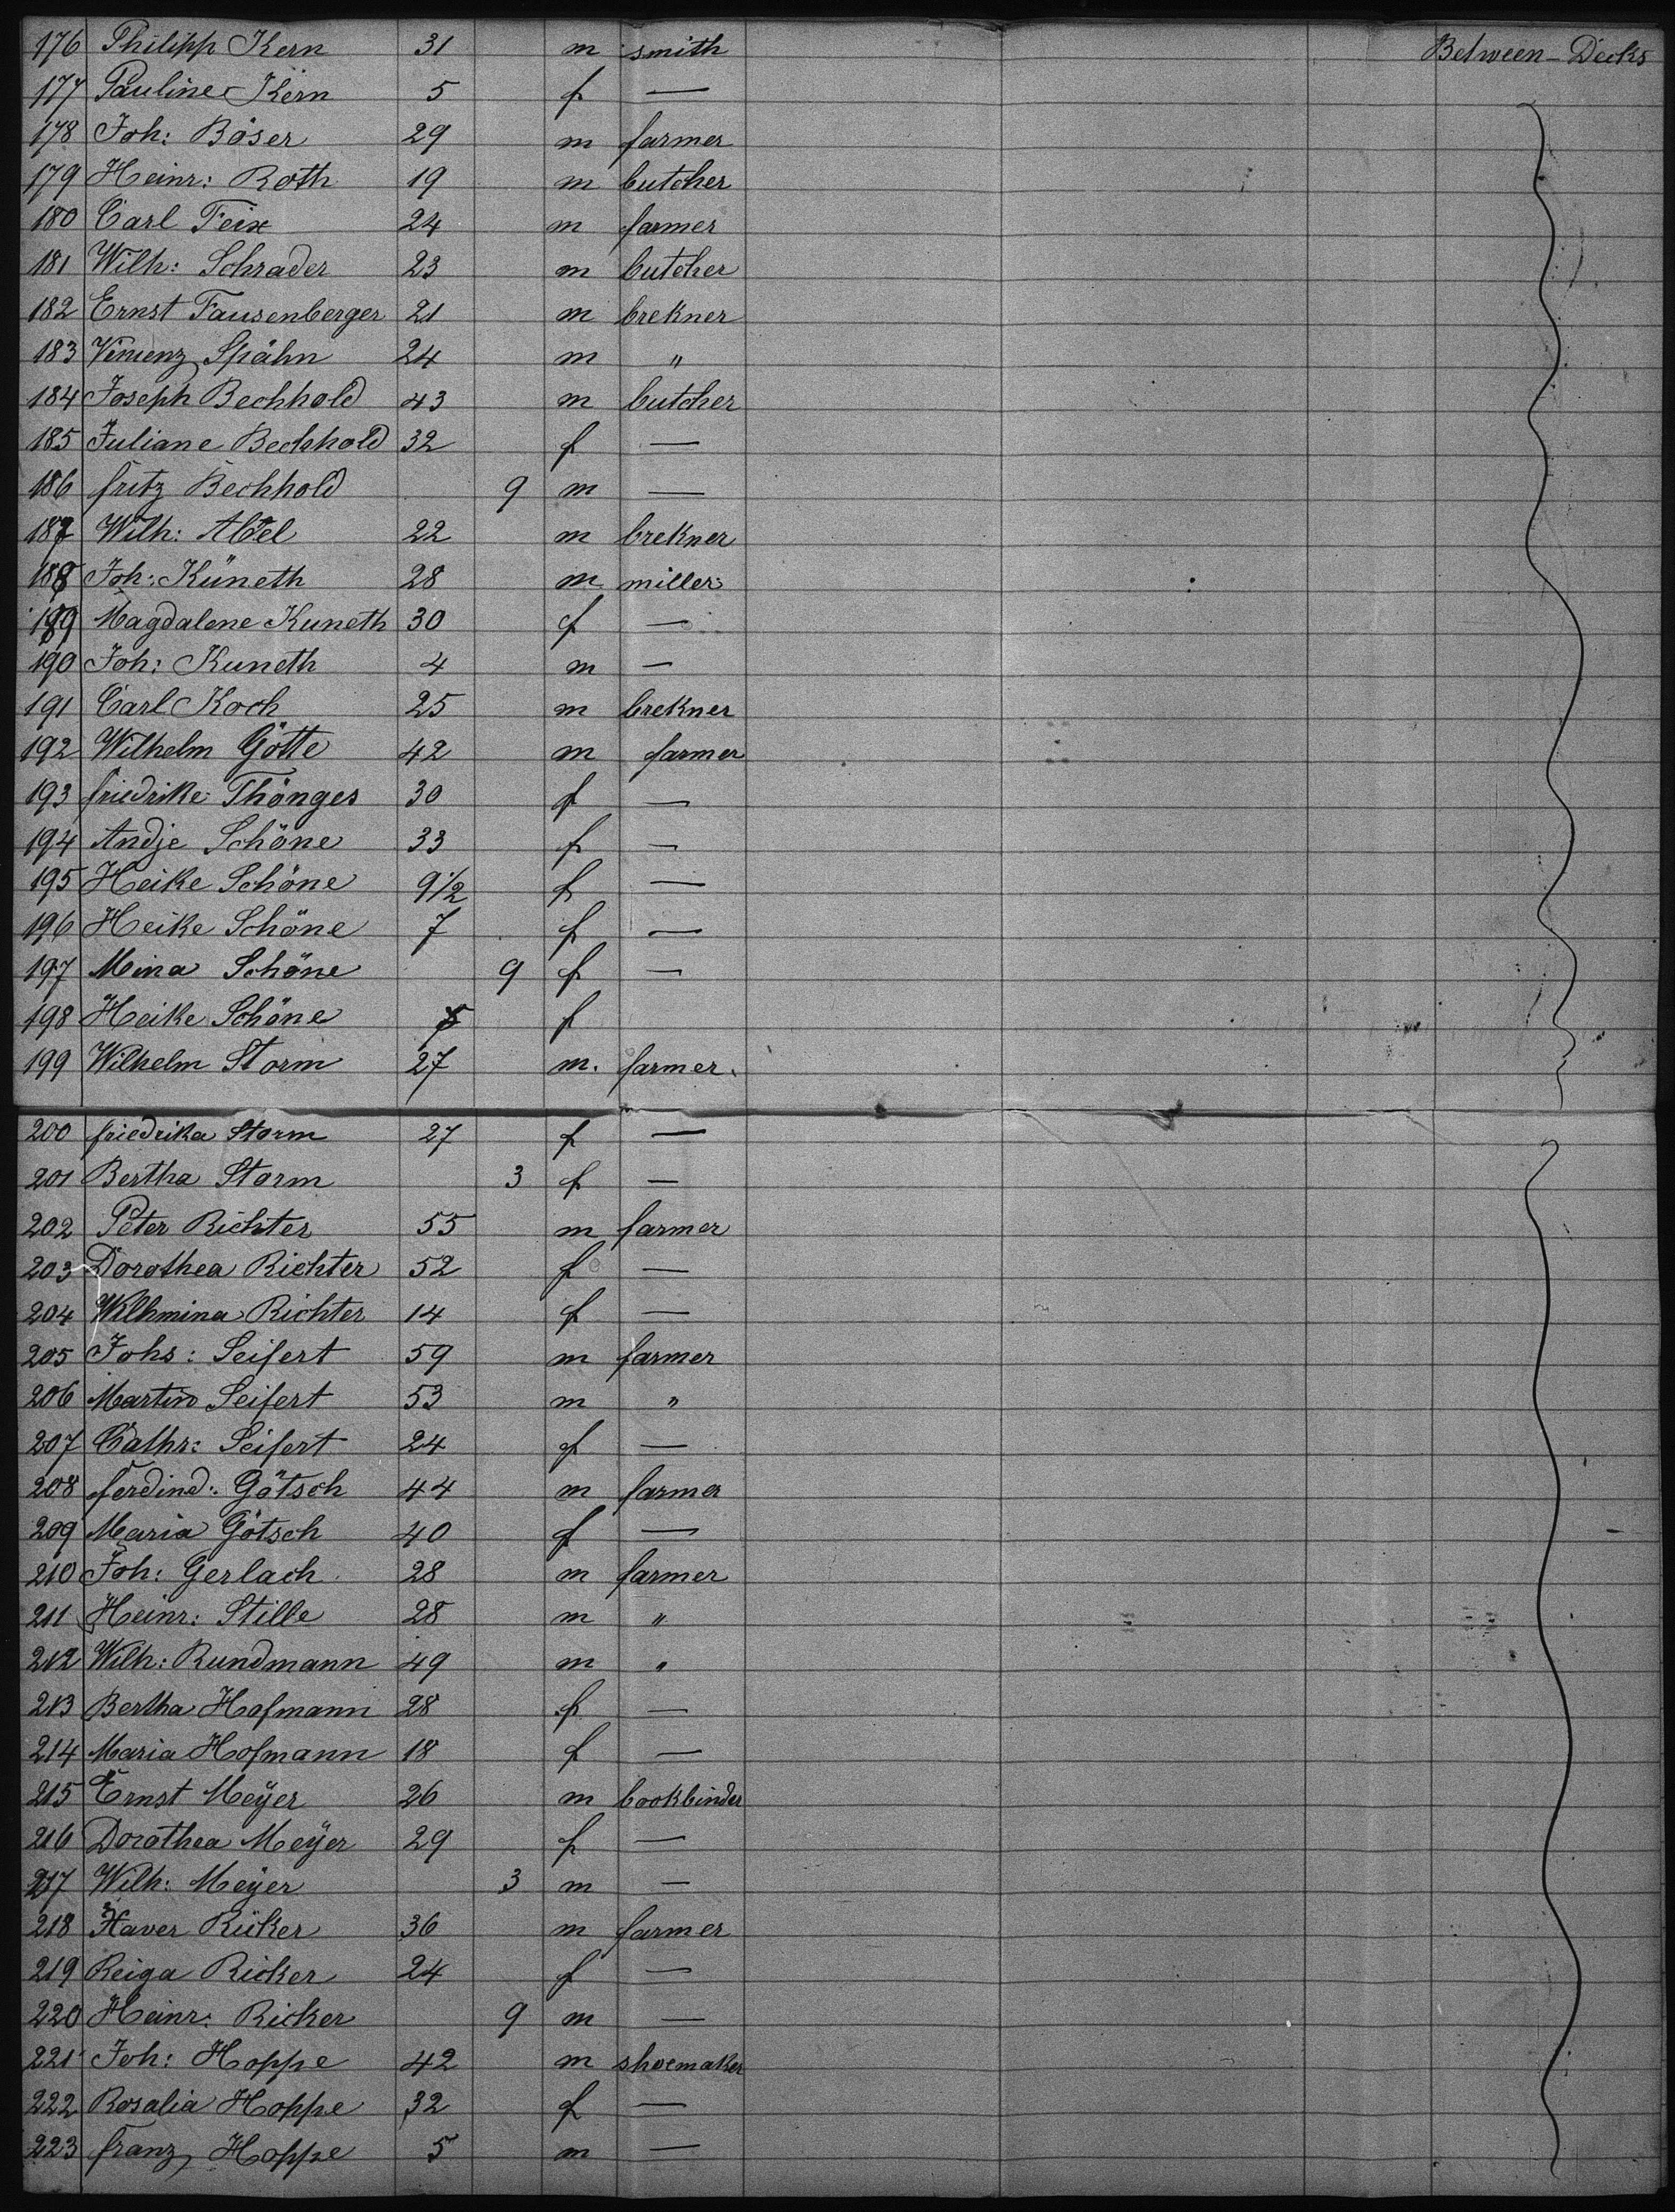 176 Philipp Kern 31 m smith Between-Decks
177 Pauline Kern 5 f —
178 Joh: Böser 29 m farmer
179 Heinr: Roth 19 m butcher
180 Carl Feix 24 m farmer
181 Wilh: Schrader 23 m butcher
182 Ernst Fausenberger 21 m brekner
183 Vincenz Spähn 24 m "
184 Joseph Bechhold 43 m butcher
185 Juliane Bechhold 32 f —
186 fritz Bechhold 9 m —
187 Wilh: Abel 22 m brekner
188 Joh: Küneth 28 m miller
189 Magdalene Kuneth 30 f —
190 Joh: Kuneth 4 m —
191 Carl Koch 25 m brekner
192 Wilhelm Götte 42 m farmer
193 friedrike Thönges 30 f —
194 Andje Schöne 33 f —
195 Heike Schöne 9 1/2 f —
196 Heike Schöne 7 f —
197 Mina Schöne 9 f —
198 Heike Schöne 5 f
199 Wilhelm Storm 27 m. farmer.
200 friedrika Storm 27 f —
201 Bertha Storm 3 f —
202 Peter Richter 55 m farmer
203 Dorothea Richter 52 f —
204 Wilhmina Richter 14 f —
205 Johs: Seifert 59 m farmer
206 Martin Seifert 53 m "
207 Cathr: Seifert 24 f —
208 ferdind: Götsch 44 m farmer
209 Maria Götsch 40 f —
210 Joh: Gerlach 28 m farmer
211 Heinr: Stille 28 m "
212 Wilh: Rundmann 49 m "
213 Bertha Hofmann 28 f —
214 Maria Hofmann 18 f —
215 Ernst Meÿer 26 m bookbinder
216 Dorothea Meÿer 29 f —
217 Wilh: Meÿer 3 m —
218 Xaver Ricker 36 m farmer
219 Reiga Ricker 24 f —
220 Heinr: Ricker 9 m —
221 Joh: Hoppe 42 m shoemaker
222 Rosalia Hoppe 32 f —
223 franz Hoppe 5 m —